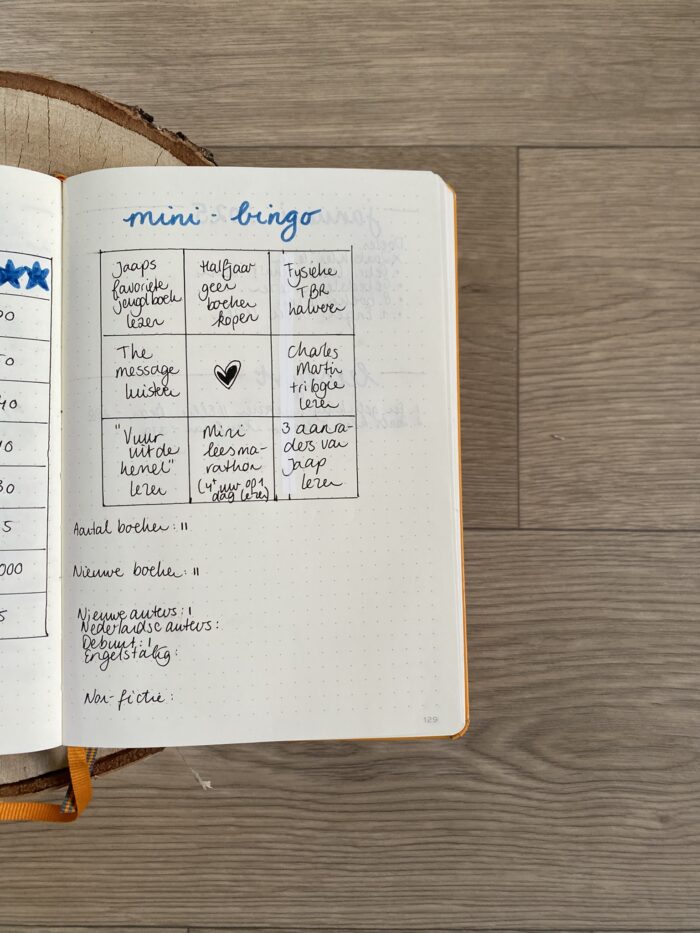 mini-bingo
Jaaps
favoriete
jeugdboek
lezen
Halfjaar
geen
boeken
kopen
Fysieke
TBR
halveren
The
message
luisteren
Charles
Martin
trilogie
lezen
"Vuur
uit de
hemel"
lezen
Mini
leesma-
rathon
(4+ uur op 1
dag lezen)
3 aanra-
ders van
Jaap
lezen
Aantal boeken: II
Nieuwe boeken: II
Nieuwe auteurs: I
Nederlandse auteurs:
Debuut: I
Engelstalig:
Non-fictie:
129
00
50
40
10
30
5
000
5